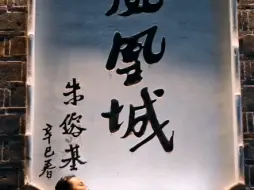 凰城
朱镕基
辛巳春